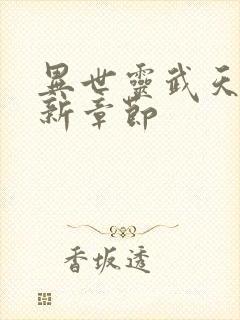 異世靈武天
新章節
香坂透